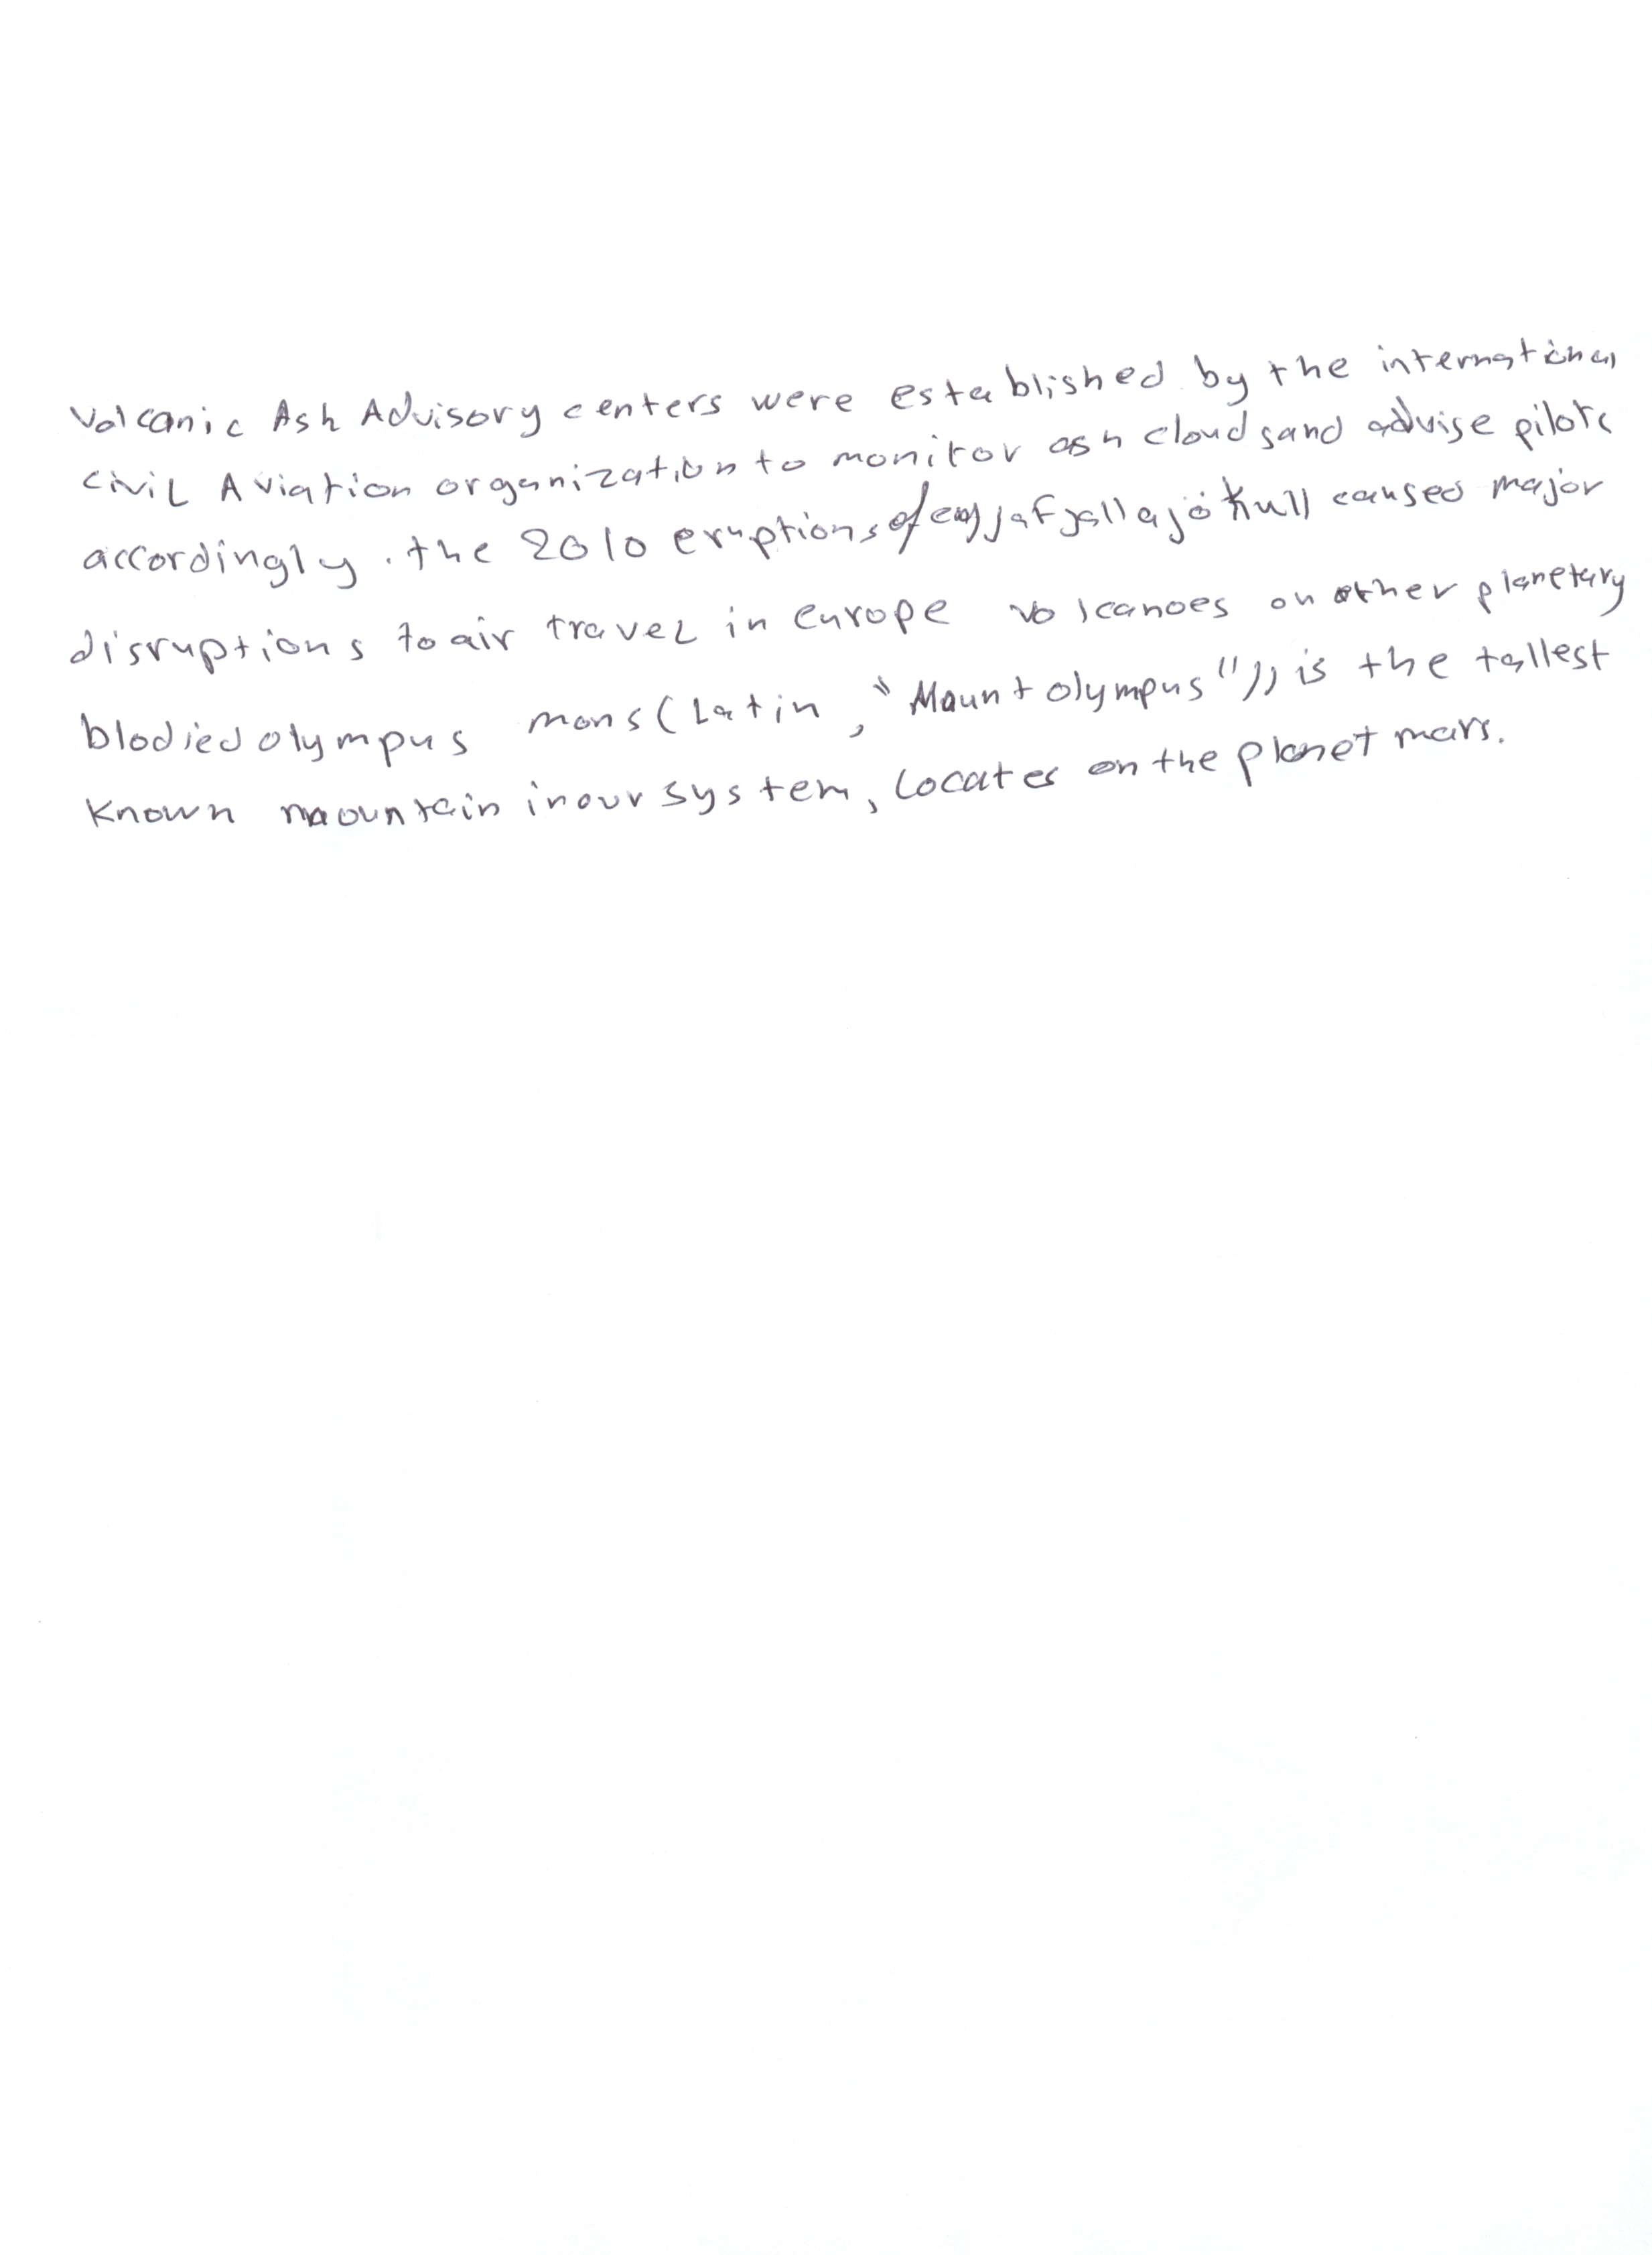 Volcanic Ash Advisory centers were established by the international
civil Aviation organization to monitor ash clouds and advise pilots
accordingly. the 2010 eruptions of eyjafjallajökull caused major
disruptions to air travel in europe volcanoes on other planetary
blodied olympus mons (Latin, "Mount olympus"), is the tallest
Known mountain in our system, Locates on the planet mars.